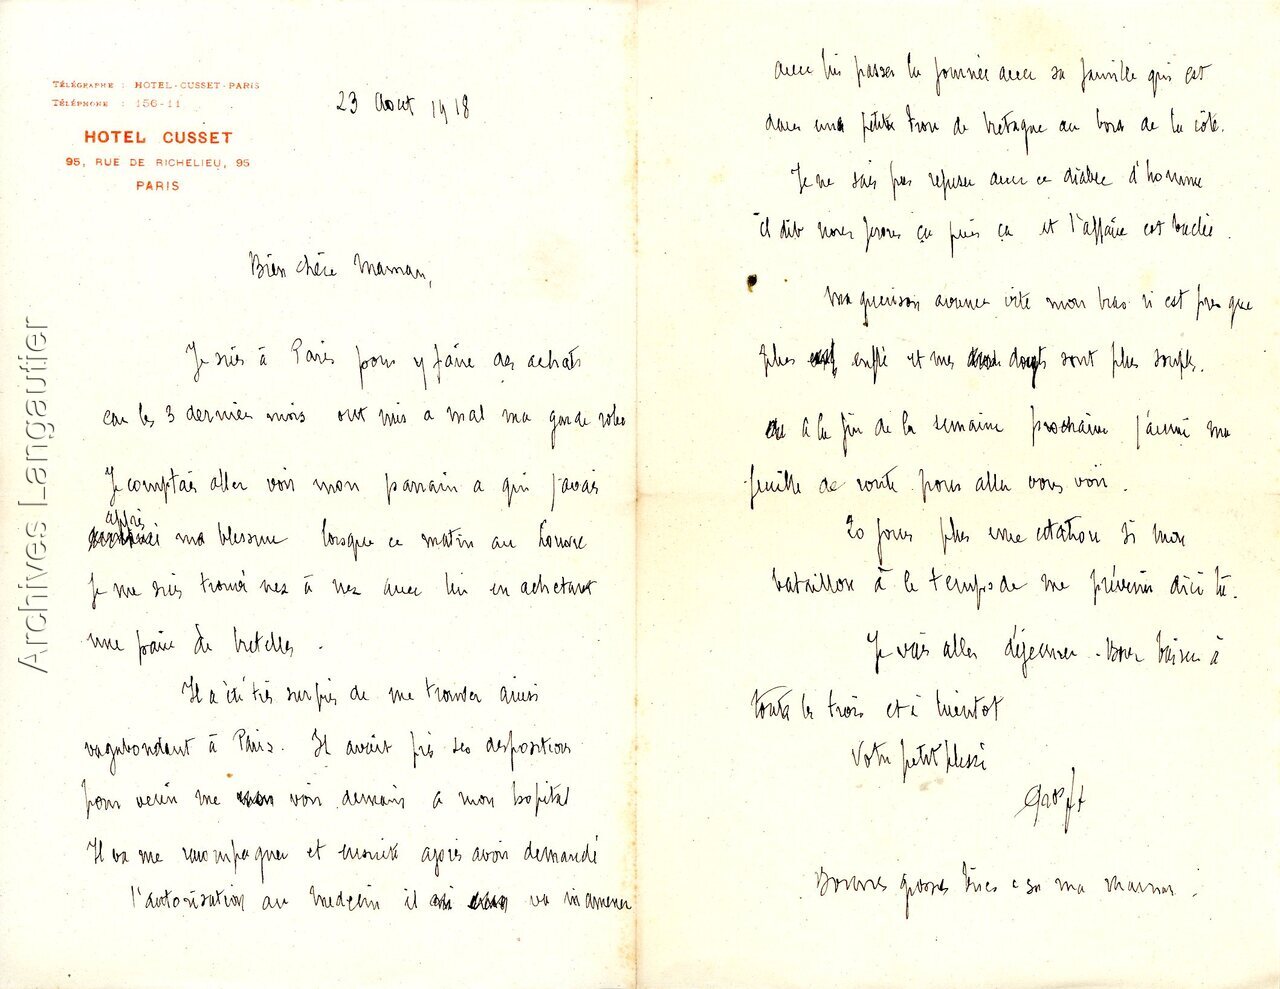 TÉLÉGRAPHE : HOTEL-CUSSET-PARIS
TÉLÉPHONE : 156-11
HOTEL CUSSET
95, RUE DE RICHELIEU, 95
PARIS
23 Aout 1918
Bien chère Maman,
Je suis à Paris pour y faire des achats
car les 3 derniers mois ont mis a mal ma garde robe
Je comptais aller voir mon parrain a qui j'avais
appris ma blessure lorsque ce matin au Louvre
Je me suis trouvé nez à nez avec lui en achetant
une paire de bretelles.
Il a été très surpris de me trouver ainsi
vagabondant à Paris. Il avait pris ses dispositions
pour venir me voir demain a mon hopital
Il va me raccompagner et ensuite après avoir demandé
l'autorisation au medecin il va m'amener
avec lui passer la journée avec sa famille qui est
dans un petit trou de bretagne au bord de la côte.
Je ne sais pas refuser avec ce diable d'homme
il dit nous ferons ça puis ça et l'affaire est baclée.
Ma guerison avance vite mon bras n'est presque
plus enflé et mes doigts sont plus souples.
a la fin de la semaine prochaine j'aurai ma
feuille de route pour aller vous voir.
20 jours plus une citation si mon
bataillon à le temps de me prévenir d'ici là.
Je vais aller déjeuner. Bon baiser à
toute les trois et à bientot
Votre petit blessé
Bonnes grosses bises a ma maman.
Archives Langautier